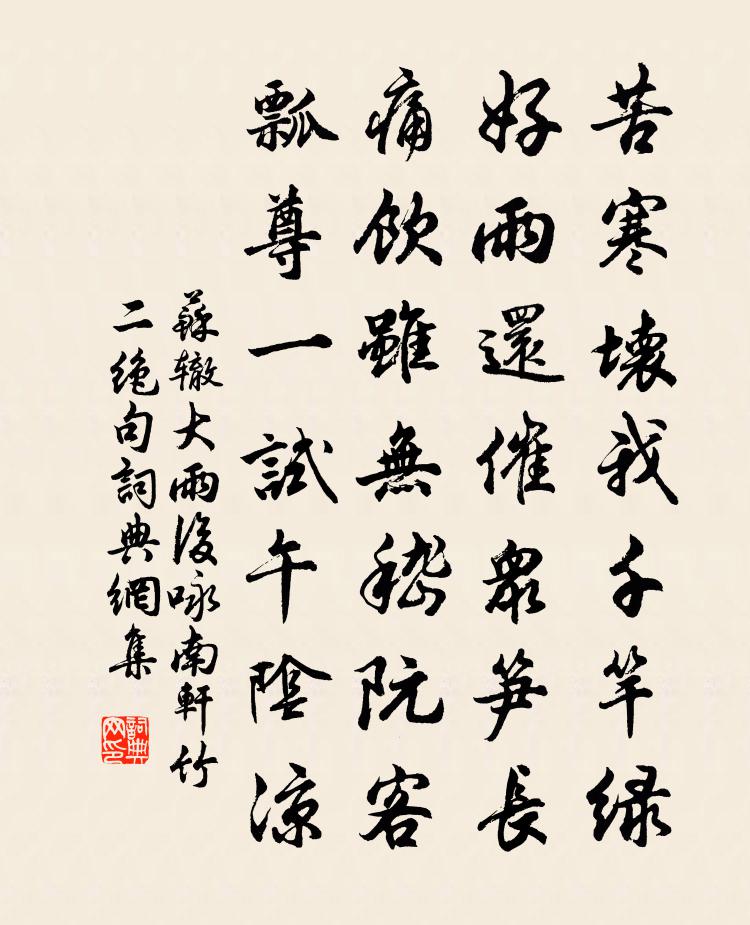 苦寒壞我千竿緑
好雨還催衆笋長
痛飲雖無嵇阮客
瓢尊一試午陰涼
蘇辙大雨後咏南軒竹
二絶句詞典網集
詞典网印